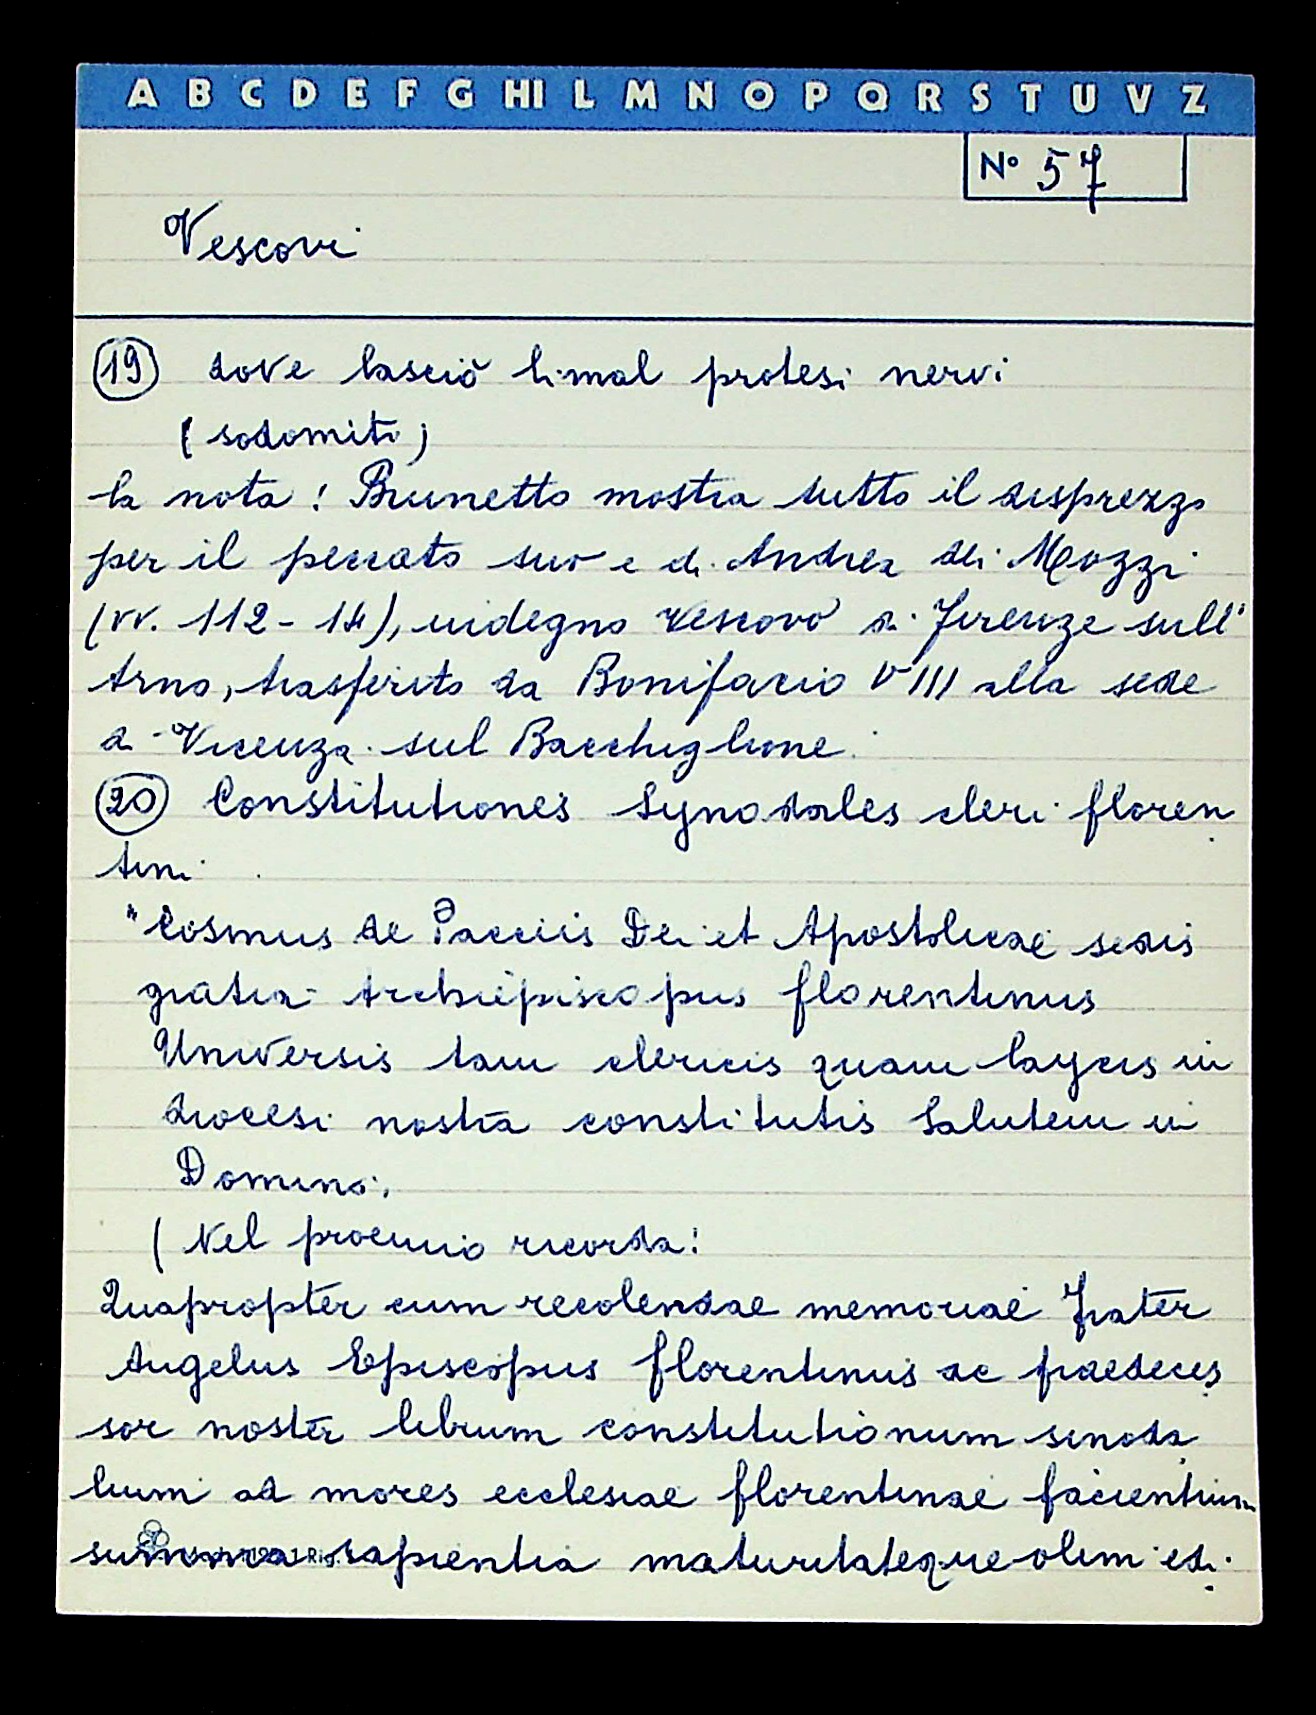 A B C D E F G HI L M N O P Q R S T U V Z
N° 57
Vescovi
19 dove lasciò li mal protesi nervi
(sodomiti)
la nota: Brunetto mostra tutto il disprezzo
per il peccato suo e di Andrea dei Mozzi
(vv. 112-14), indegno Vescovo di Firenze sull'
Arno, trasferito da Bonifacio VIII alla sede
di Vicenza sul Bacchiglione.
20 Constitutiones Synodales cleri floren
tini
"Cosmus de Pacciis Dei et Apostolicae sedis
gratia Archiepiscopus florentinus
Universis tam clericis quam laycis in
diocesi nostra constitutis Salutem in
Domino.
(Nel proemio ricorda:
Quapropter cum recolendae memoriae Frater
Angelus Episcopus florentinus ac praedeces
sor noster librum constitutionum sinoda
lium ad mores ecclesiae florentinae facientium
summa sapientia maturitateque olim edi